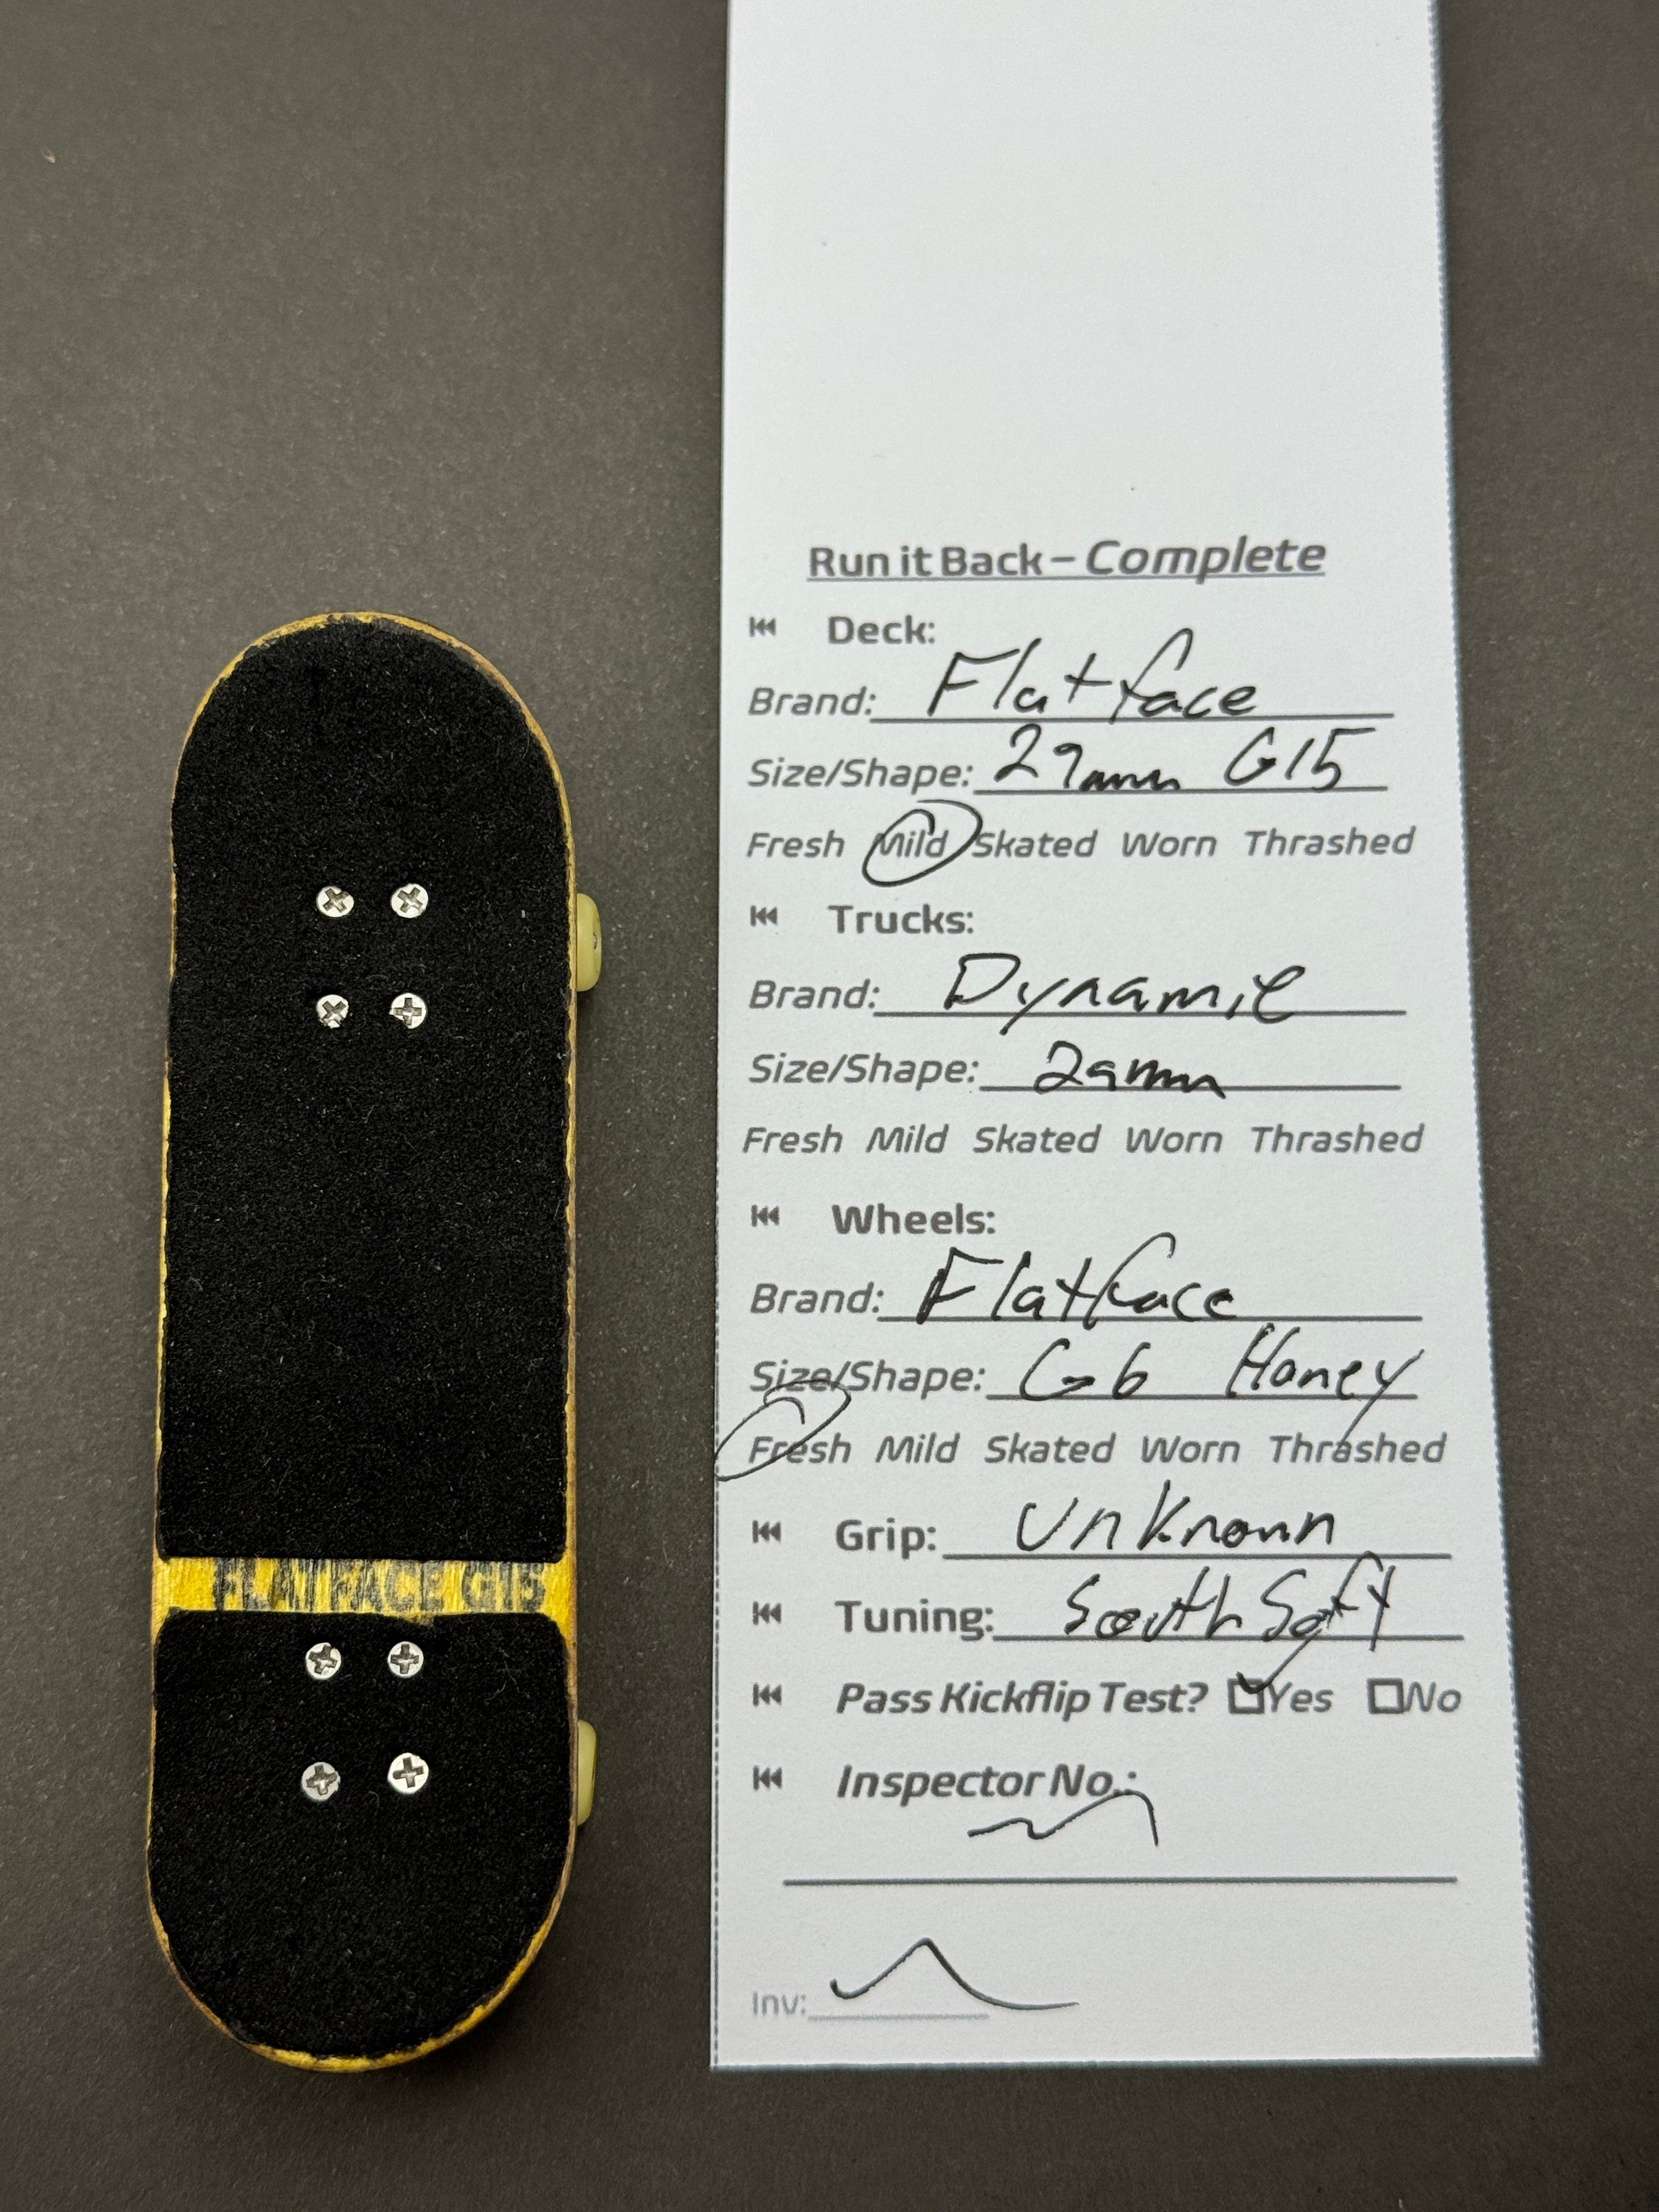 FLATFACE G15
Run it Back – Complete
Deck:
Brand: Flatface
Size/Shape: 29mm G15
Fresh Mild Skated Worn Thrashed
Trucks:
Brand: Dynamic
Size/Shape: 29mm
Fresh Mild Skated Worn Thrashed
Wheels:
Brand: Flatface
Size/Shape: G6 Honey
Fresh Mild Skated Worn Thrashed
Grip: Unknown
Tuning: South Soft
Pass Kickflip Test? Yes No
Inspector No.:
Inv: